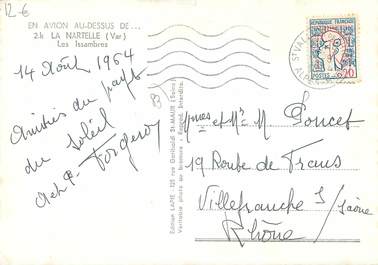 12-€
EN AVION AU-DESSUS DE...
2.h LA NARTELLE (Var)
Les Issambres
14 Août 1964
Amitiés du pays
du Soleil
Edition LAPIE, 125 rue Garibaldi St-MAUR (Seine)
Véritable photo au bromure - Reprod. Interdite
REPUBLIQUE FRANCAISE
POSTES
0,20
Mmes et Mr M Poncet
19 Route de Frans
Villefranche s/Saône
Rhône